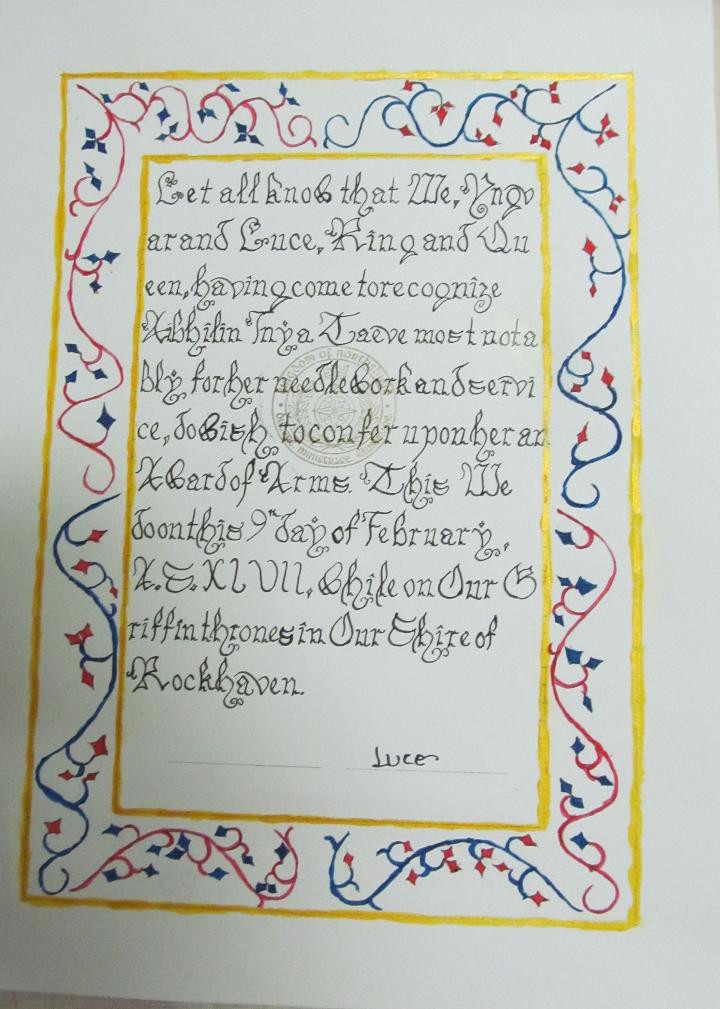 Let all know that We, Yngv
ar and Luce, King and Qu
een, having come to recognize
Aibhilin Inȳa Taeve most nota
bly for her needlework and servi
ce, do wish to confer upon her an
Award of Arms. This We
do on this 9th day of February,
A.S. XLVII, while on Our G
riffin thrones in Our Shire of
Rockhaven.
Luce